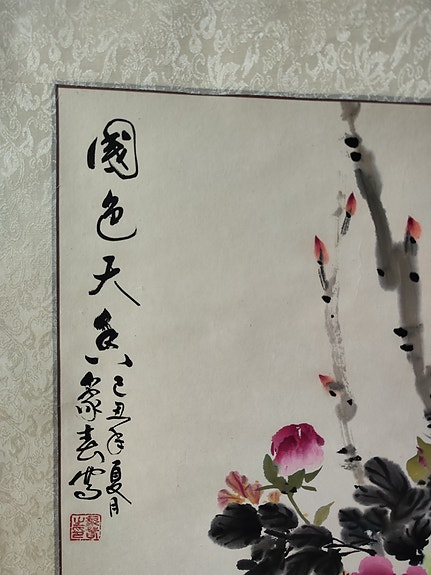 國色天香
己丑年夏月
寫